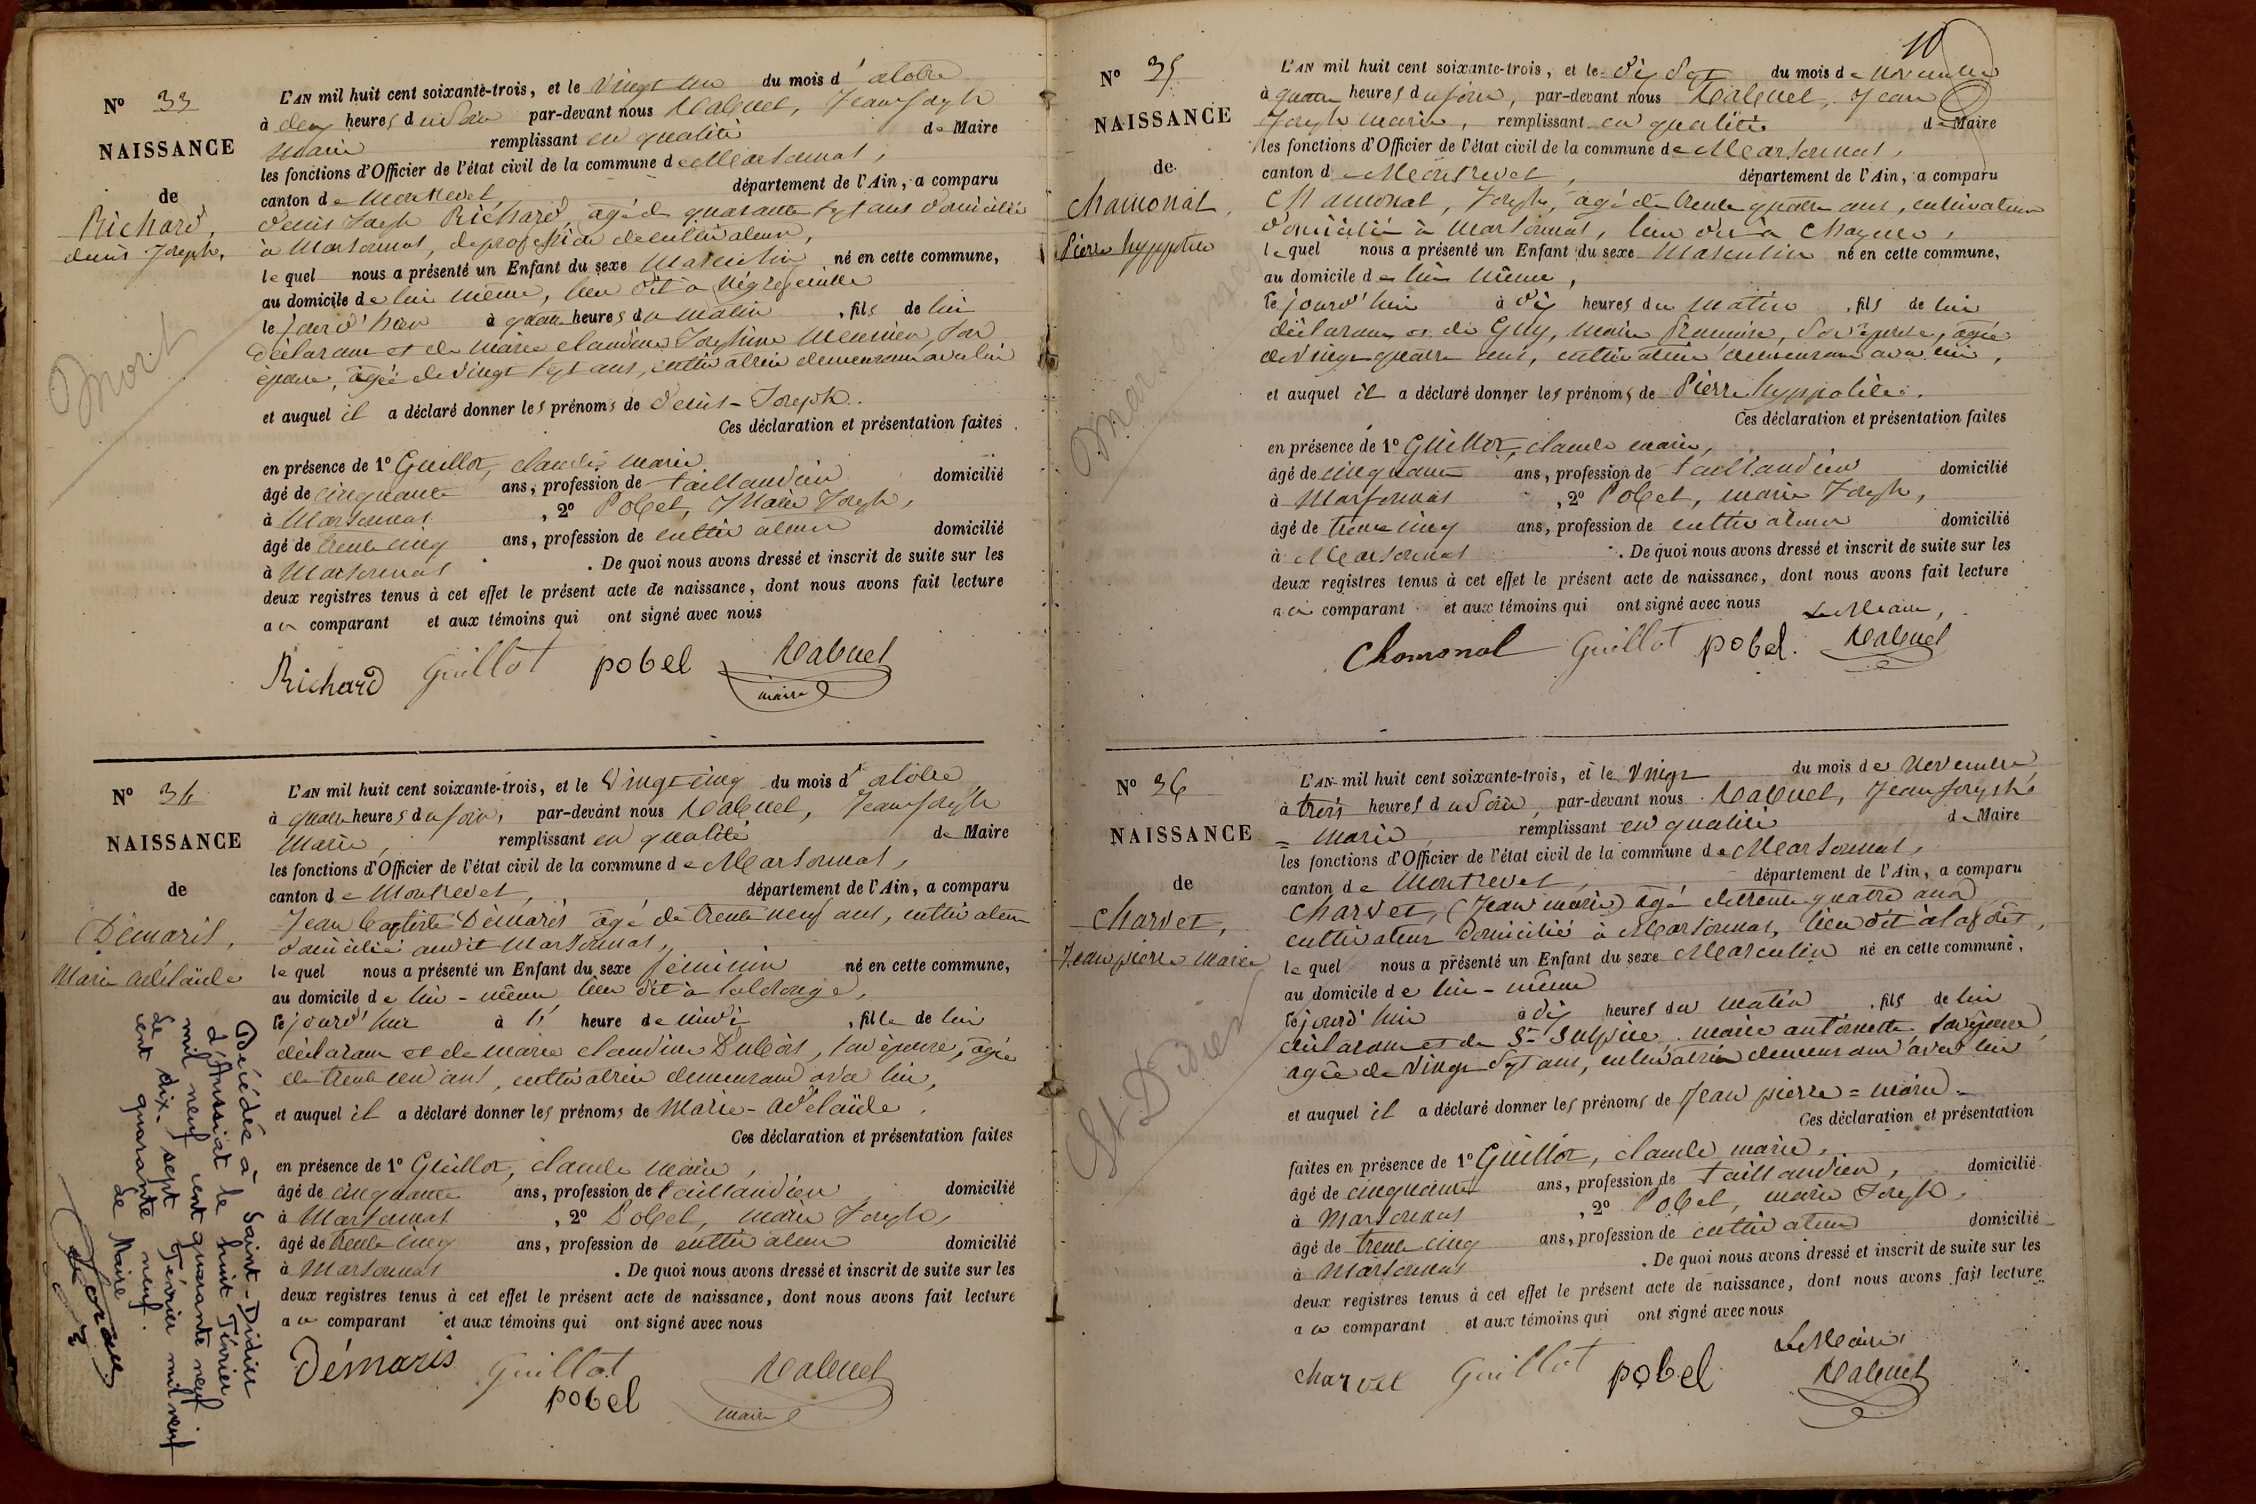 N° 33
NAISSANCE
de
Richard,
denis Joseph,
mort
L'AN mil huit cent soixante-trois, et le vingt un du mois d'octobre
à deux heures du soir par-devant nous Rabuel, Jean Joseph
Marie remplissant en qualité de Maire
les fonctions d'Officier de l'état civil de la commune de Marsonnas,
canton de Montrevel, département de l'Ain, a comparu
denis Joseph Richard, âgé de quarante sept ans domicilié
à Marsonnas, de profession de cultivateur,
lequel nous a présenté un Enfant du sexe Masculin né en cette commune,
au domicile de lui même, lieu dit à
le jourd'hui à quatre heures du matin, fils de lui
déclarant et de Marie claudine Josephine Meunier, son
épouse, âgée de vingt sept ans, cultivatrice demeurant avec lui
et auquel il a déclaré donner les prénoms de denis-Joseph.
Ces déclaration et présentation faites
en présence de 1° Guillot, claude marie
âgé de cinquante ans, profession de taillandier domicilié
à Marsonnas, 2° Pobel, Marie Joseph,
âgé de trente cinq ans, profession de cultivateur domicilié
à Marsonnas. De quoi nous avons dressé et inscrit de suite sur les
deux registres tenus à cet effet le présent acte de naissance, dont nous avons fait lecture
au comparant et aux témoins qui ont signé avec nous
Richard Guillot pobel Rabuel
maire
N° 34
NAISSANCE
de
Démaris,
Marie adélaïde
L'AN mil huit cent soixante-trois, et le vingt cinq du mois d'octobre
à quatre heures du soir, par-devant nous Rabuel, Jean Joseph
Marie, remplissant en qualité de Maire
les fonctions d'Officier de l'état civil de la commune de Marsonnas,
canton de Montrevel, département de l'Ain, a comparu
Jean baptiste Démaris âgé de trente neuf ans, cultivateur
domicilié audit Marsonnas,
lequel nous a présenté un Enfant du sexe féminin né en cette commune,
au domicile de lui-même lieu dit à
le jourd'hui à 1 heure de midi, fille de lui
déclarant et de marie claudine Dubois, son épouse, âgée
de trente un ans, cultivatrice demeurant avec lui,
et auquel il a déclaré donner les prénoms de Marie-adélaïde.
Ces déclaration et présentation faites
en présence de 1° Guillot, claude marie,
âgé de cinquante ans, profession de taillandier domicilié
à Marsonnas, 2° Pobel, marie Joseph,
âgé de trente cinq ans, profession de cultivateur domicilié
à Marsonnas. De quoi nous avons dressé et inscrit de suite sur les
deux registres tenus à cet effet le présent acte de naissance, dont nous avons fait lecture
au comparant et aux témoins qui ont signé avec nous
Démaris Guillot Rabuel
pobel maire
Décédée à Saint-Didier
d'Aussiat le huit février
mil neuf cent quarante neuf.
Le dix-sept Février mil neuf
cent quarante neuf.
Le Maire
10
N° 35
NAISSANCE
de
Chamonal,
Pierre hyppolite
L'AN mil huit cent soixante-trois, et le dix sept du mois de novembre
à quatre heures du soir, par-devant nous Rabuel, Jean
Joseph marie, remplissant en qualité de Maire
les fonctions d'Officier de l'état civil de la commune de Marsonnas,
canton de Montrevel, département de l'Ain, a comparu
Chamonal, Joseph, âgé de trente quatre ans, cultivateur
domicilié à Marsonnas, lieu dit à
lequel nous a présenté un Enfant du sexe Masculin né en cette commune,
au domicile de lui même,
le jourd'hui à dix heures du matin, fils de lui
déclarant et de Guy, marie son épouse, âgée
de vingt quatre ans, cultivatrice demeurant avec lui,
et auquel il a déclaré donner les prénoms de Pierre hyppolite.
Ces déclaration et présentation faites
en présence de 1° Guillot, claude marie,
âgé de cinquante ans, profession de taillandier domicilié
à Marsonnas, 2° Pobel, marie Joseph,
âgé de trente cinq ans, profession de cultivateur domicilié
à Marsonnas. De quoi nous avons dressé et inscrit de suite sur les
deux registres tenus à cet effet le présent acte de naissance, dont nous avons fait lecture
au comparant et aux témoins qui ont signé avec nous Le Maire,
Chamonal Guillot pobel. Rabuel
N° 36
NAISSANCE
de
Charvet,
Jean pierre marie
St Didier
L'AN mil huit cent soixante-trois, et le vingt du mois de novembre
à trois heures du soir, par-devant nous Rabuel, Jean Joseph
= Marie, remplissant en qualité de Maire
les fonctions d'Officier de l'état civil de la commune de Marsonnas,
canton de Montrevel, département de l'Ain, a comparu
Charvet, (Jean marie) âgé de trente quatre ans
cultivateur domicilié à Marsonnas, lieu dit
lequel nous a présenté un Enfant du sexe Masculin né en cette commune,
au domicile de lui-même
le jourd'hui à dix heures du matin, fils de lui
déclarant et de St Sulpice marie antoinette son épouse
âgée de vingt sept ans, cultivatrice demeurant avec lui
et auquel il a déclaré donner les prénoms de Jean pierre = marie.
Ces déclaration et présentation
faites en présence de 1° Guillot, claude marie,
âgé de cinquante ans, profession de taillandier, domicilié
à Marsonnas, 2° Pobel, marie Joseph,
âgé de trente cinq ans, profession de cultivateur domicilié
à Marsonnas. De quoi nous avons dressé et inscrit de suite sur les
deux registres tenus à cet effet le présent acte de naissance, dont nous avons fait lecture
au comparant et aux témoins qui ont signé avec nous
Le Maire
Charvet Guillot pobel Rabuel